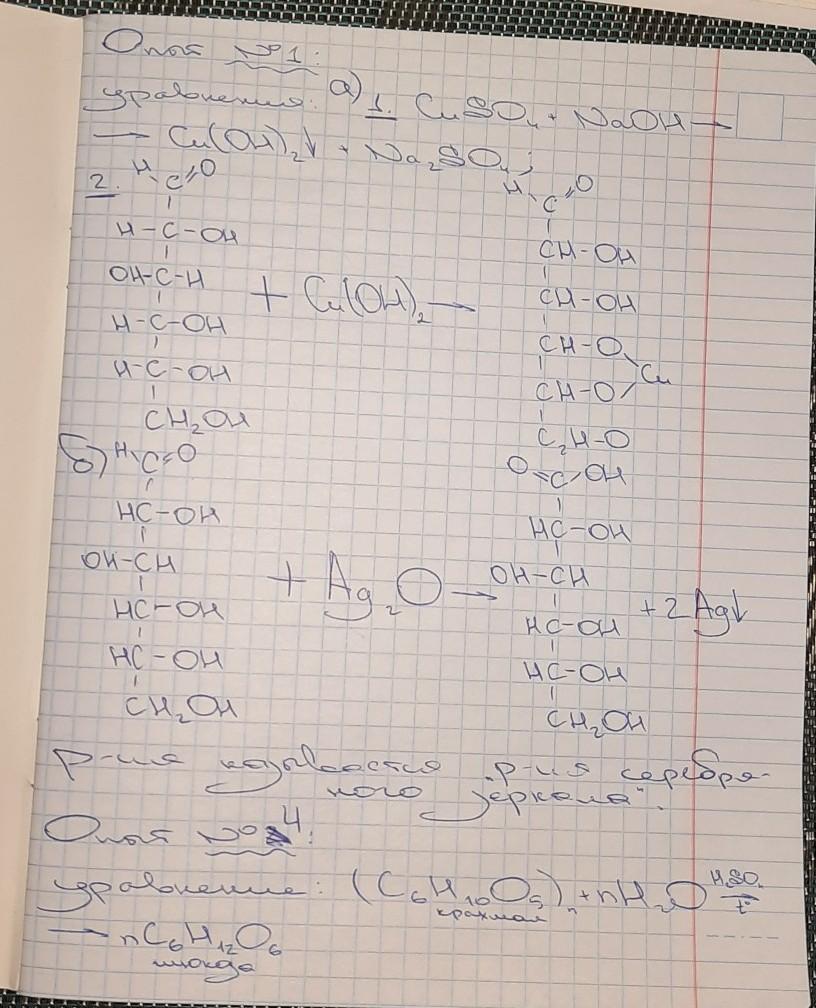 Опыт №1:
уравнения: а) 1. CuSO₄ + NaOH →
→ Cu(OH)₂↓ + Na₂SO₄;
2. H C O H C O
H-C-OH CH-OH
OH-C-H + Cu(OH)₂ → CH-OH
H-C-OH CH-O
H-C-OH CH-O Cu
CH₂OH C₂H-O
б) H C=O O=C OH
HC-OH HC-OH
OH-CH + Ag₂O → OH-CH + 2Ag↓
HC-OH HC-OH
HC-OH HC-OH
CH₂OH CH₂OH
р-ия называется „р-ия серебря-
ного зеркала".
Опыт №4:
уравнение: (C₆H₁₀O₅)ₙ + nH₂O H₂SO₄ t°
крахмал
→ nC₆H₁₂O₆
глюкоза